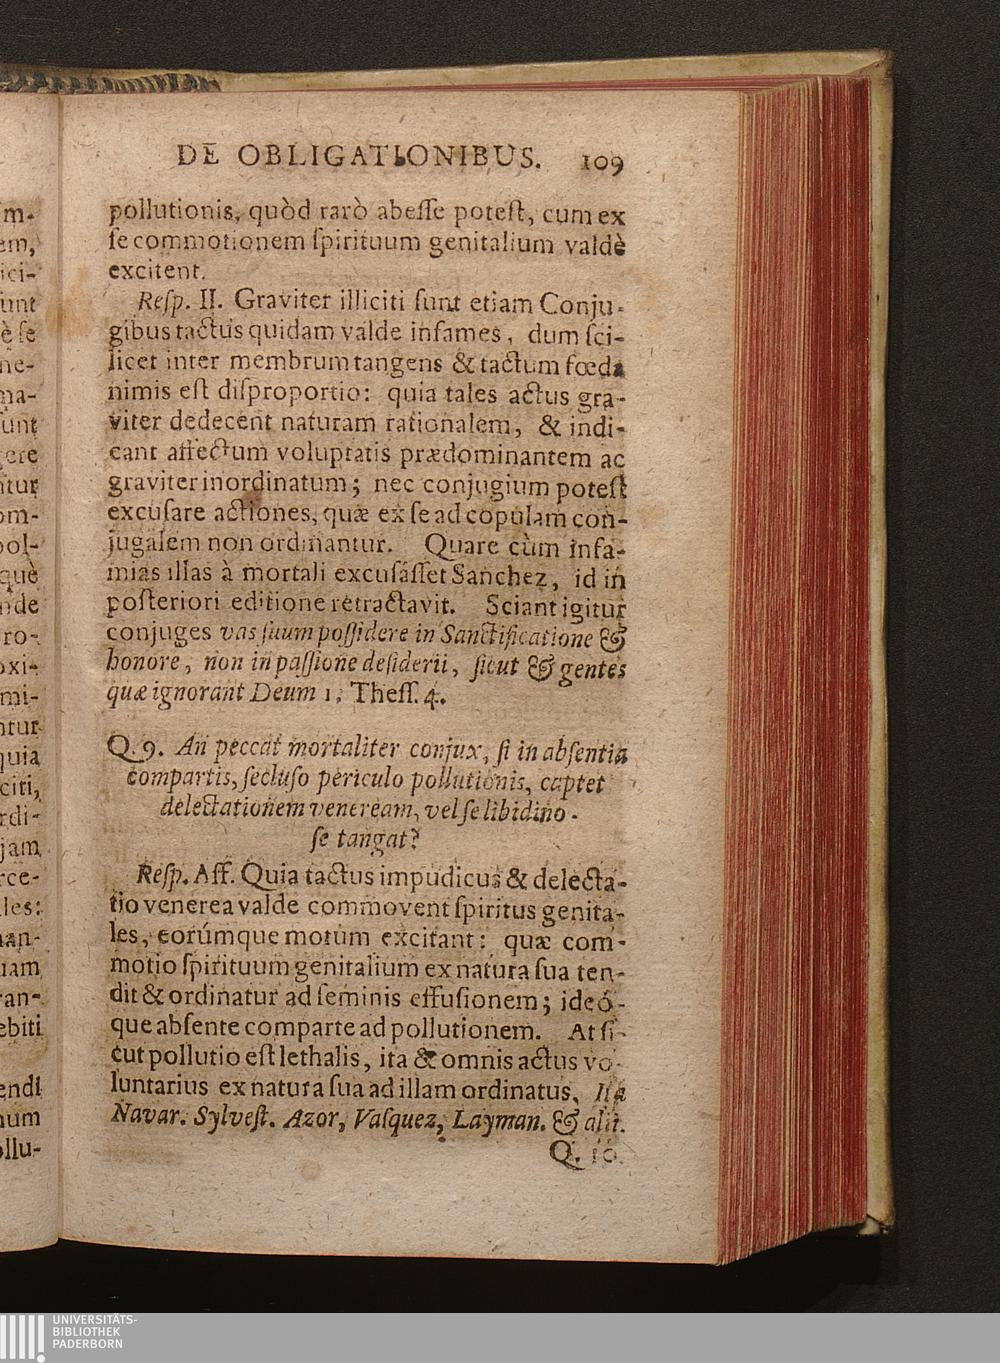 DE OBLIGATIONIBUS. 109
pollutionis, quòd rarò abeſſe poteſt, cum ex
ſe commotionem ſpirituum genitalium valdè
excitent.
Reſp. II. Graviter illiciti ſunt etiam Conju-
gibus tactus quidam valde infames, dum ſci-
licet inter membrum tangens & tactum fœda
nimis eſt diſproportio: quia tales actus gra-
viter dedecent naturam rationalem, & indi-
cant affectum voluptatis prædominantem ac
graviter inordinatum; nec conjugium poteſt
excuſare actiones, quæ ex ſe ad copulam con-
jugalem non ordinantur. Quare cùm infa-
mias illas à mortali excuſáſſet Sanchez, id in
poſteriori editione retractavit. Sciant igitur
conjuges vas ſuum poſſidere in Sanctificatione &
honore, non in paſſione deſiderii, ſicut & gentes
quæ ignorant Deum 1. Theſſ. 4.
Q. 9. An peccat mortaliter conjux, ſi in abſentia
compartis, ſecluſo periculo pollutionis, captet
delectationem veneream, vel ſe libidino-
ſe tangat?
Reſp. Aff. Quia tactus impudicus & delecta-
tio venerea valde commovent ſpiritus genita-
les, eorúmque motum excitant: quæ com-
motio ſpirituum genitalium ex natura ſua ten-
dit & ordinatur ad ſeminis effuſionem; ideó-
que abſente comparte ad pollutionem. At ſi-
cut pollutio eſt lethalis, ita & omnis actus vo-
luntarius ex natura ſua ad illam ordinatus, Ita
Navar. Sylveſt. Azor, Vaſquez, Layman. & alii.
Q. 10.
m-
em,
ici-
iunt
è ſe
ne-
na-
unt
ere
itur
om-
pol-
què
nde
ro-
oxi-
mi-
ntur
quia
citi,
rdi-
jam
rce-
les:
nan-
uam
ran-
ebiti
endi
num
ollu-
UNIVERSITÄTS-
BIBLIOTHEK
PADERBORN